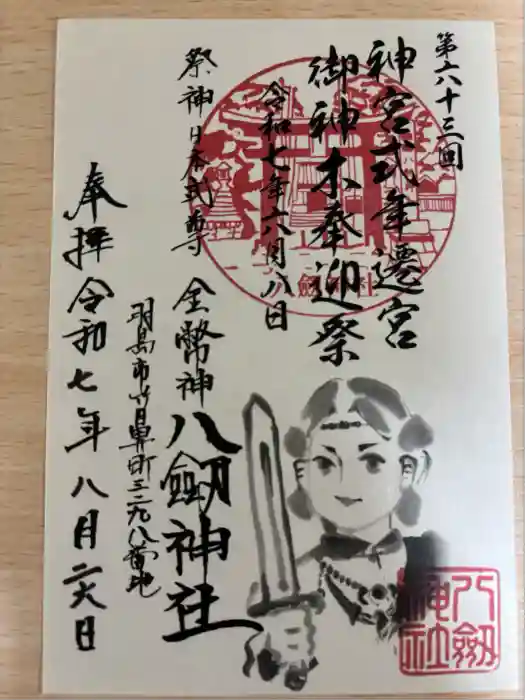 第六十三回
神宮式年遷宮
御神木奉迎祭
令和七年六月八日
祭神日本武尊
全幣神
八劔神社
羽島市竹鼻町三二九八番地
奉拝令和七年八月二六日
劔神社
八劔神社